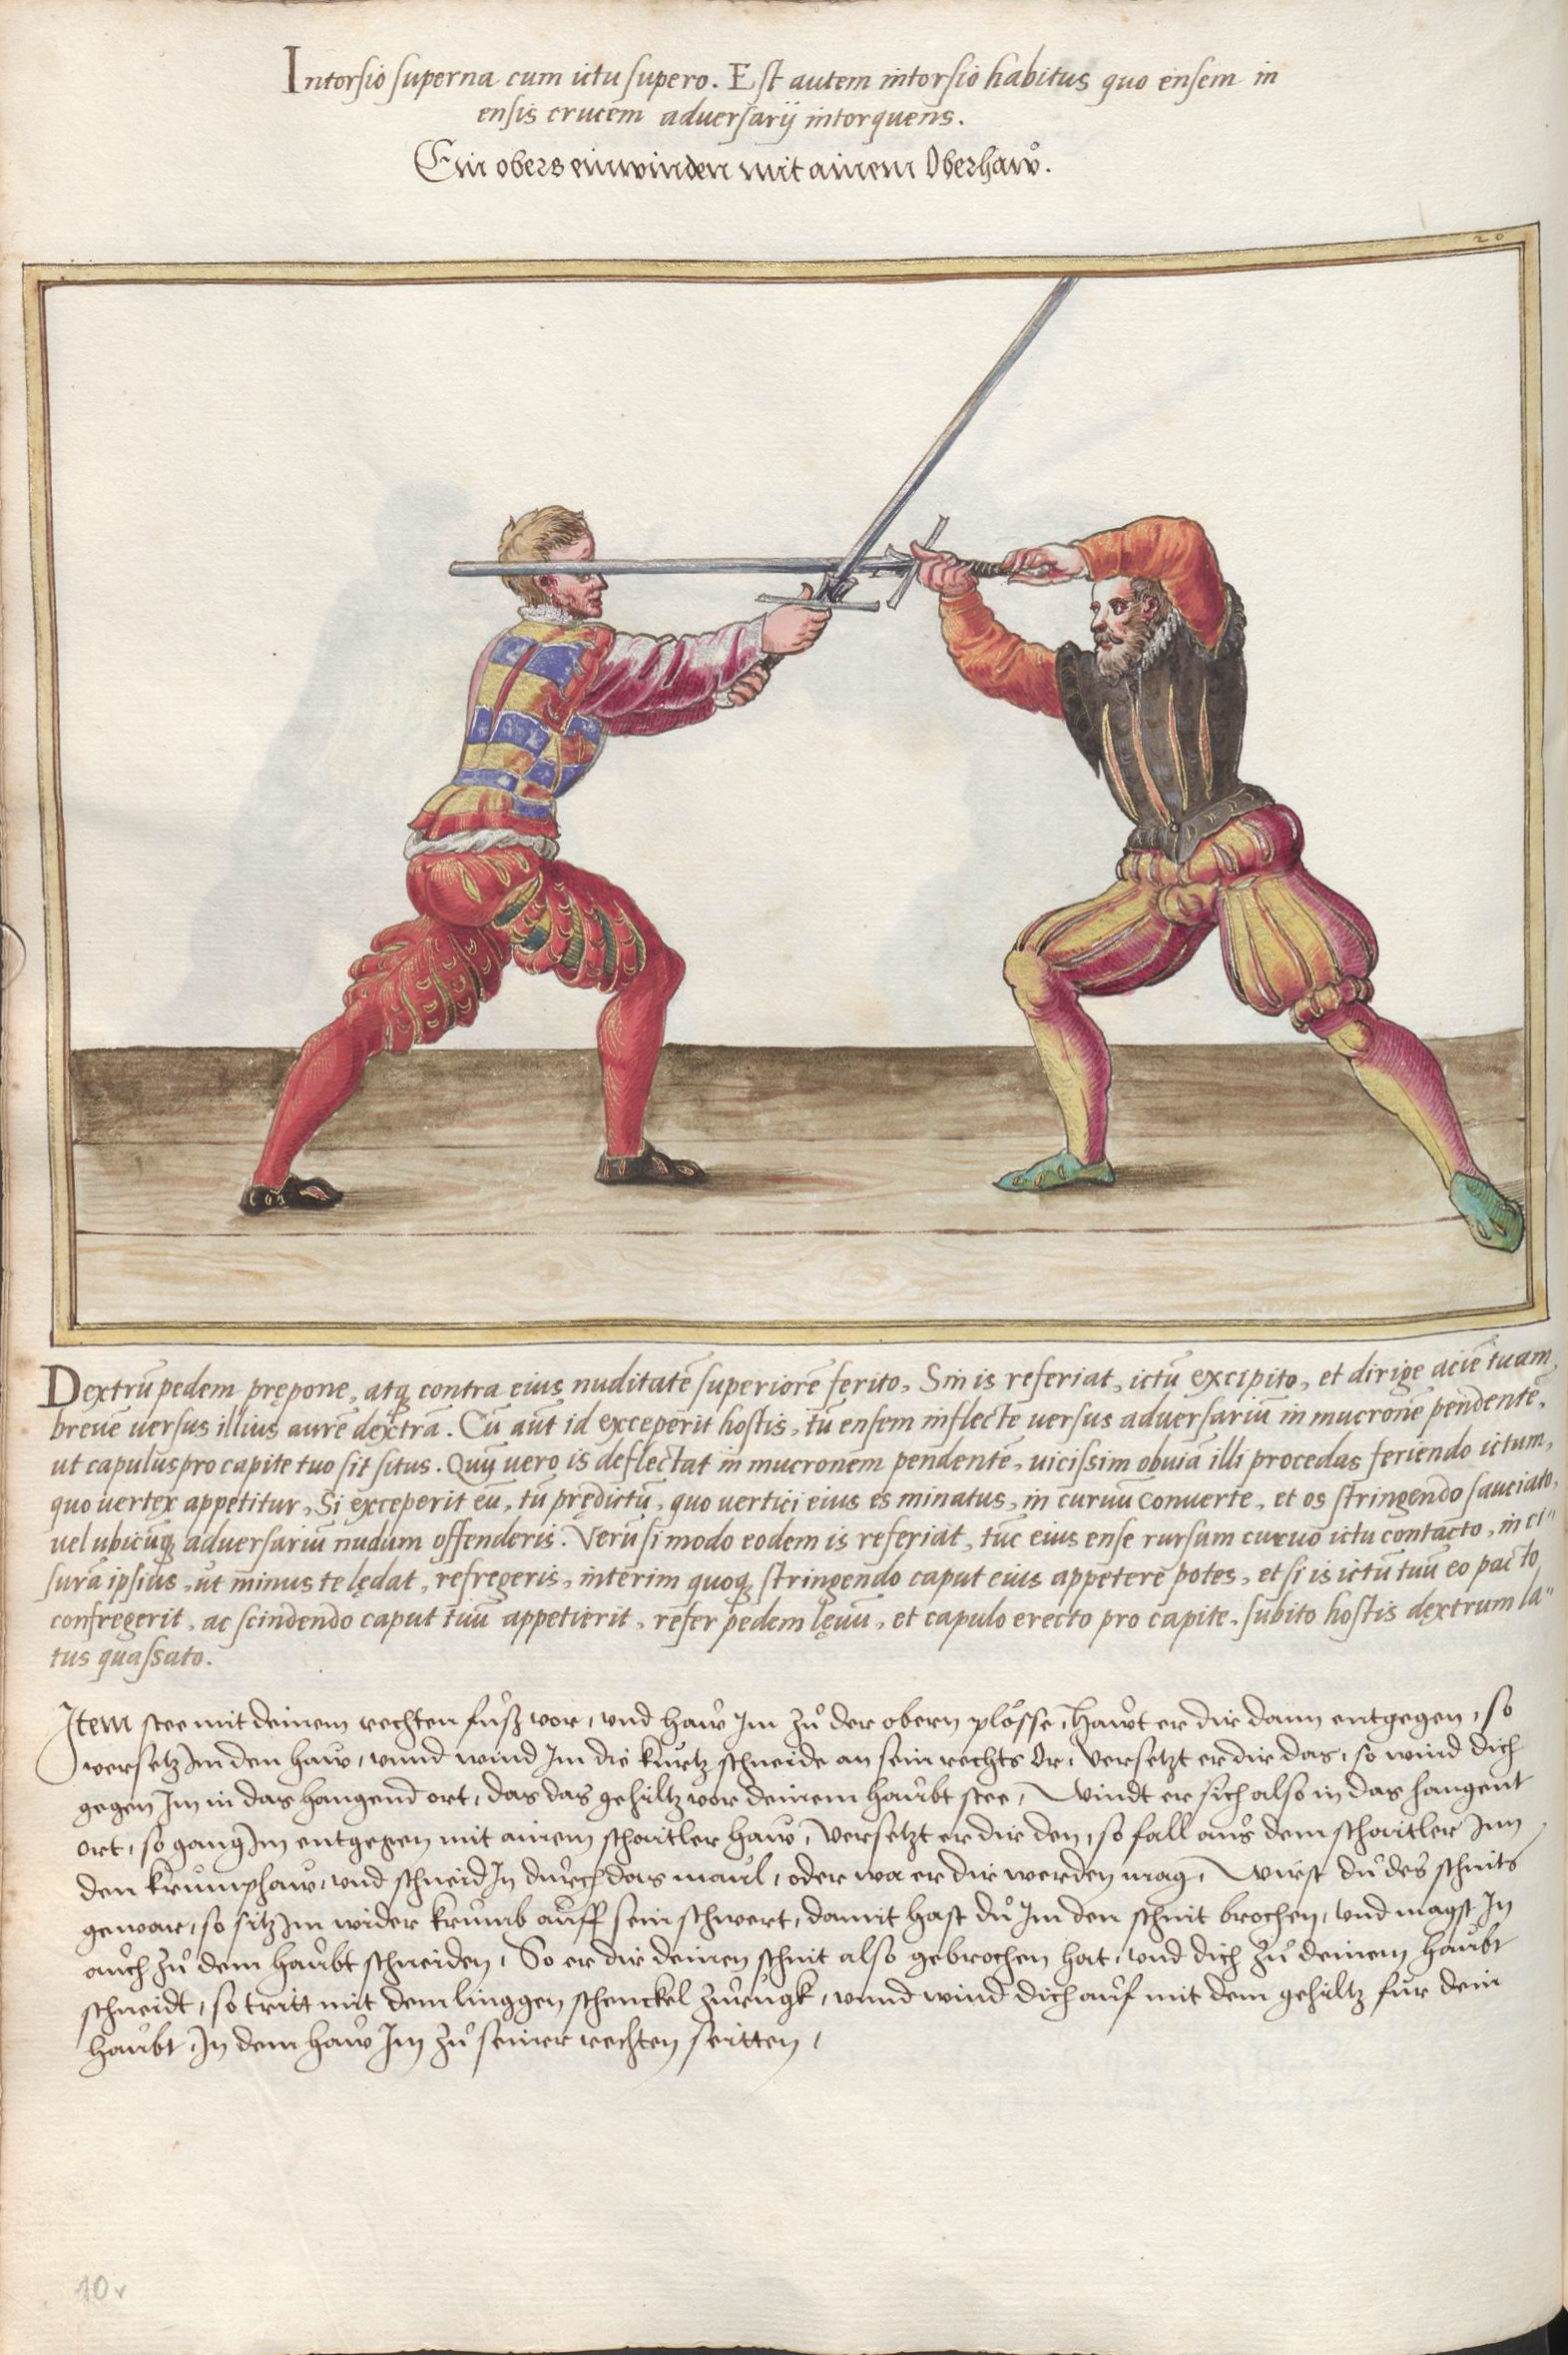 Intorsio superna cum ictu supero. Est autem intorsio habitus quo ensem in
ensis crucem adversarij intorquens.
Ein obers einwinden mit ainem Oberhaw.
20
Dextrū pedem prępone, atq contra eius nuditatē superiorē ferito, Sin is referiat, ictū excipito, et dirige aciē tuam
brevē uersus illius aurē dextrā. Cū aut id exceperit hostis, tū ensem inflecte uersus adversariū in mucronē pendentē,
ut capulus pro capite tuo sit situs. Quū uero is deflectat in mucronem pendentē, uicissim obuiā illi procedas feriendo ictum,
quo uertex appetitur, Si exceperit eū, tū prędictū, quo uertici eius es minatus, in curuū conuerte, et os stringendo sauciato,
uel ubicūq adversariū nudum offenderis. Verū si modo eodem is referiat, tūc eius ense rursum curuo ictu contacto, in ci"
surā ipsius, ut minus te lędat, refregeris, interim quoq stringendo caput eius appetere potes, et si is ictū tuū eo pacto
confregerit, ac scindendo caput tuū appetierit, refer pedem lęuū, et capulo erecto pro capite, subito hostis dextrum la"
tus quassato.
Item stee mit deinem rechten fůß vor, und haw Im zů der obern plösse, hawt er dir dann entgegen, so
versetz Im den haw, unnd wind Im die kurtz schneide an sein rechts Or, versetzt er dir das, so wind dich
gegen Im in das hangend ort, das das gehültz vor deinem haubt stee, Windt er sich also in das hangent
ort, so gang Im entgegen mit ainem schaitler haw, versetzt er dir den, so fall aus dem schaitler Inn
den krumphaw, und schneid In durch das maul, oder wa er dir werden mag, Wirst du des schnits
gewar, so sitz Im wider krumb auff sein schwert, damit hast du Im den schnit brochen, und magst In
auch zů dem haubt schneiden, So er dir deinen schnit also gebrochen hat, und dich zů deinem haubt
schneidt, so tritt mit dem linggen schenckel zurugk, unnd wind dich auf mit dem gehültz für dein
haubt, In dem haw Im zů seiner rechten seitten,
10v